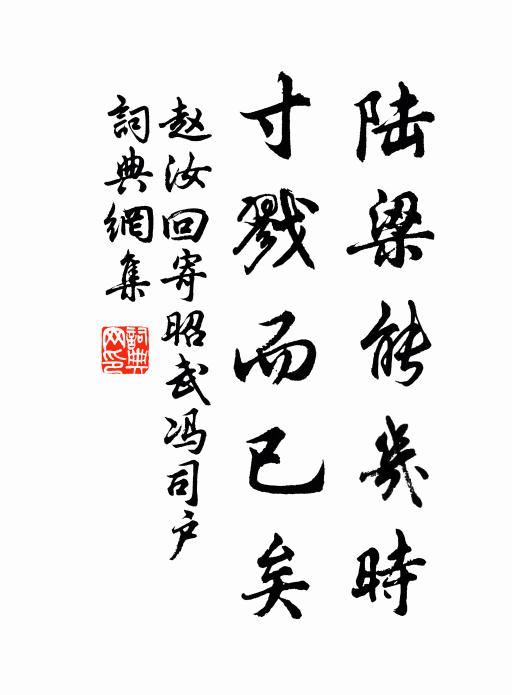 陆梁能几時
寸戮而已矣
赵汝回寄昭武冯司户
詞典網集
詞典网印